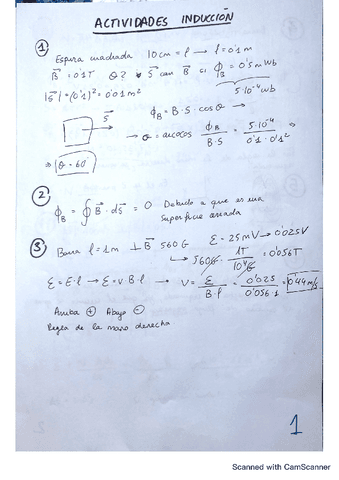 ACTIVIDADES INDUCCIÓN
① Espira cuadrada 10cm = l → l = 0'1 m
B⃗ = 0'1T θ? S⃗ con B⃗ si ϕ_B = 0'5 mWb
5·10⁻⁴ Wb
|S⃗| = (0'1)² = 0'01 m²
S⃗
ϕ_B = B · S · cos θ
→ θ = arccos ϕ_B / B·S = 5·10⁻⁴ / 0'1 · 0'1²
⇒ θ = 60°
② ϕ_B = ∮ B⃗ · dS⃗ = 0 Debido a que es una
superficie cerrada
③ Barra l = 1m ⊥ B⃗ 560 G ℰ = 25mV → 0'025V
↳ 560G · 1T / 10⁴G = 0'056T
ℰ = E·l → ℰ = v·B·l → v = ℰ / B·l = 0'025 / 0'056·1 = 0'44 m/s
Arriba ⊕ Abajo ⊖
Regla de la mano derecha
1
Scanned with CamScanner